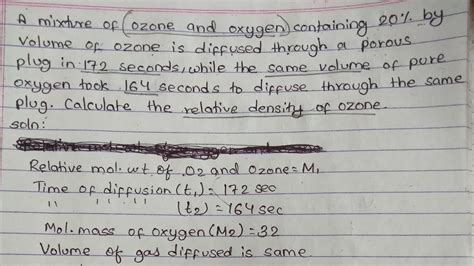 A mixture of (ozone and oxygen) containing 20% by
volume of ozone is diffused through a porous
plug in 172 seconds, while the same volume of pure
oxygen took 164 seconds to diffuse through the same
plug. Calculate the relative density of ozone.
soln:
Relative mol. wt of O2 and Ozone = M1
Time of diffusion (t1) = 172 sec
" " " " (t2) = 164 sec
Mol. mass of oxygen (M2) = 32
Volume of gas diffused is same.